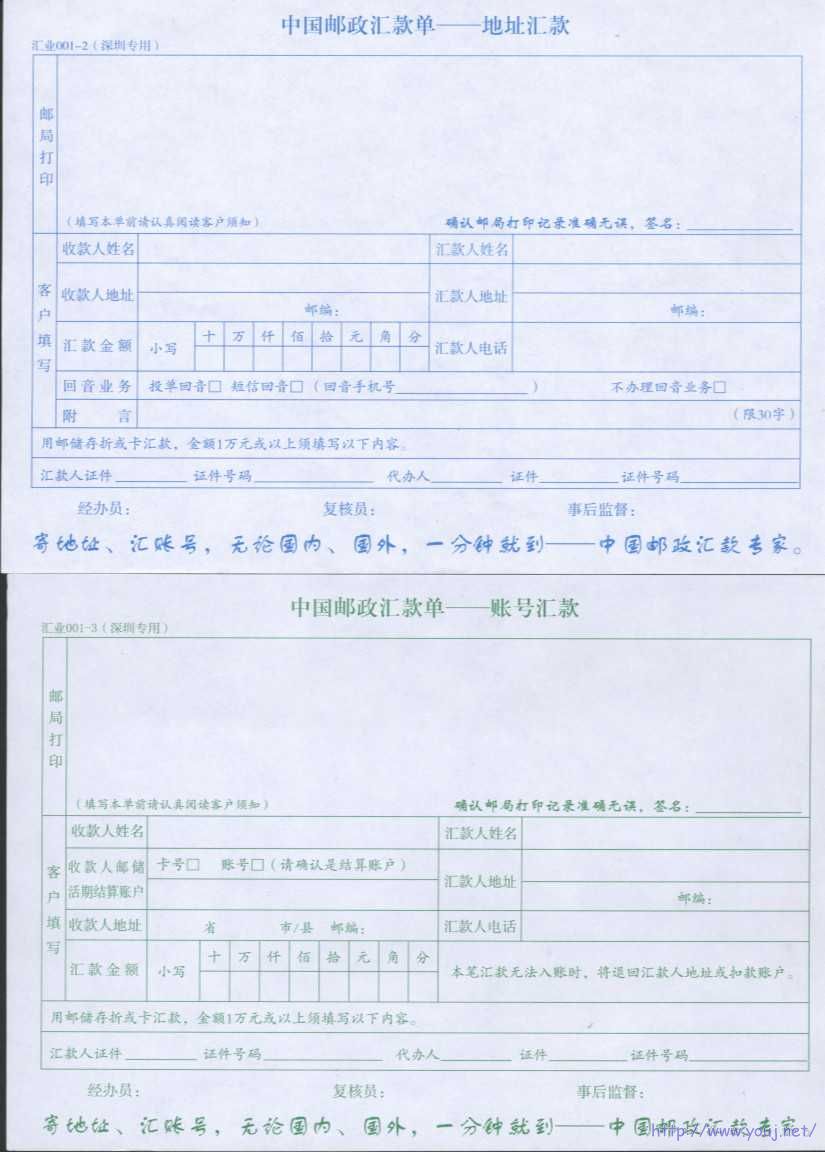 中国邮政汇款单——地址汇款
汇业001-2（深圳专用）
邮局打印
（填写本单前请认真阅读客户须知） 确认邮局打印记录准确无误，签名：
客户填写
收款人姓名 汇款人姓名
收款人地址 邮编： 汇款人地址 邮编：
汇款金额 小写 十 万 仟 佰 拾 元 角 分 汇款人电话
回音业务 投单回音□ 短信回音□（回音手机号 ） 不办理回音业务□
附言 （限30字）
用邮储存折或卡汇款，金额1万元或以上须填写以下内容。
汇款人证件 证件号码 代办人 证件 证件号码
经办员： 复核员： 事后监督：
寄地址、汇账号，无论国内、国外，一分钟就到——中国邮政汇款专家。
中国邮政汇款单——账号汇款
汇业001-3（深圳专用）
邮局打印
（填写本单前请认真阅读客户须知） 确认邮局打印记录准确无误，签名：
客户填写
收款人姓名 汇款人姓名
收款人邮储活期结算账户 卡号□ 账号□（请确认是结算账户） 汇款人地址 邮编：
收款人地址 省 市/县 邮编： 汇款人电话
汇款金额 小写 十 万 仟 佰 拾 元 角 分 本笔汇款无法入账时，将退回汇款人地址或扣款账户。
用邮储存折或卡汇款，金额1万元或以上须填写以下内容。
汇款人证件 证件号码 代办人 证件 证件号码
经办员： 复核员： 事后监督：
寄地址、汇账号，无论国内、国外，一分钟就到——中国邮政汇款专家
http://www.youj.net/